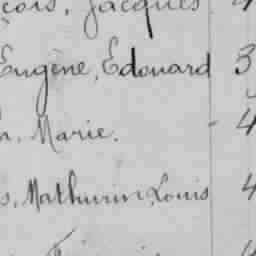 çois, Jacques
Eugène, Edouard 3
a, Marie. 4
s, Mathurin, Louis 4